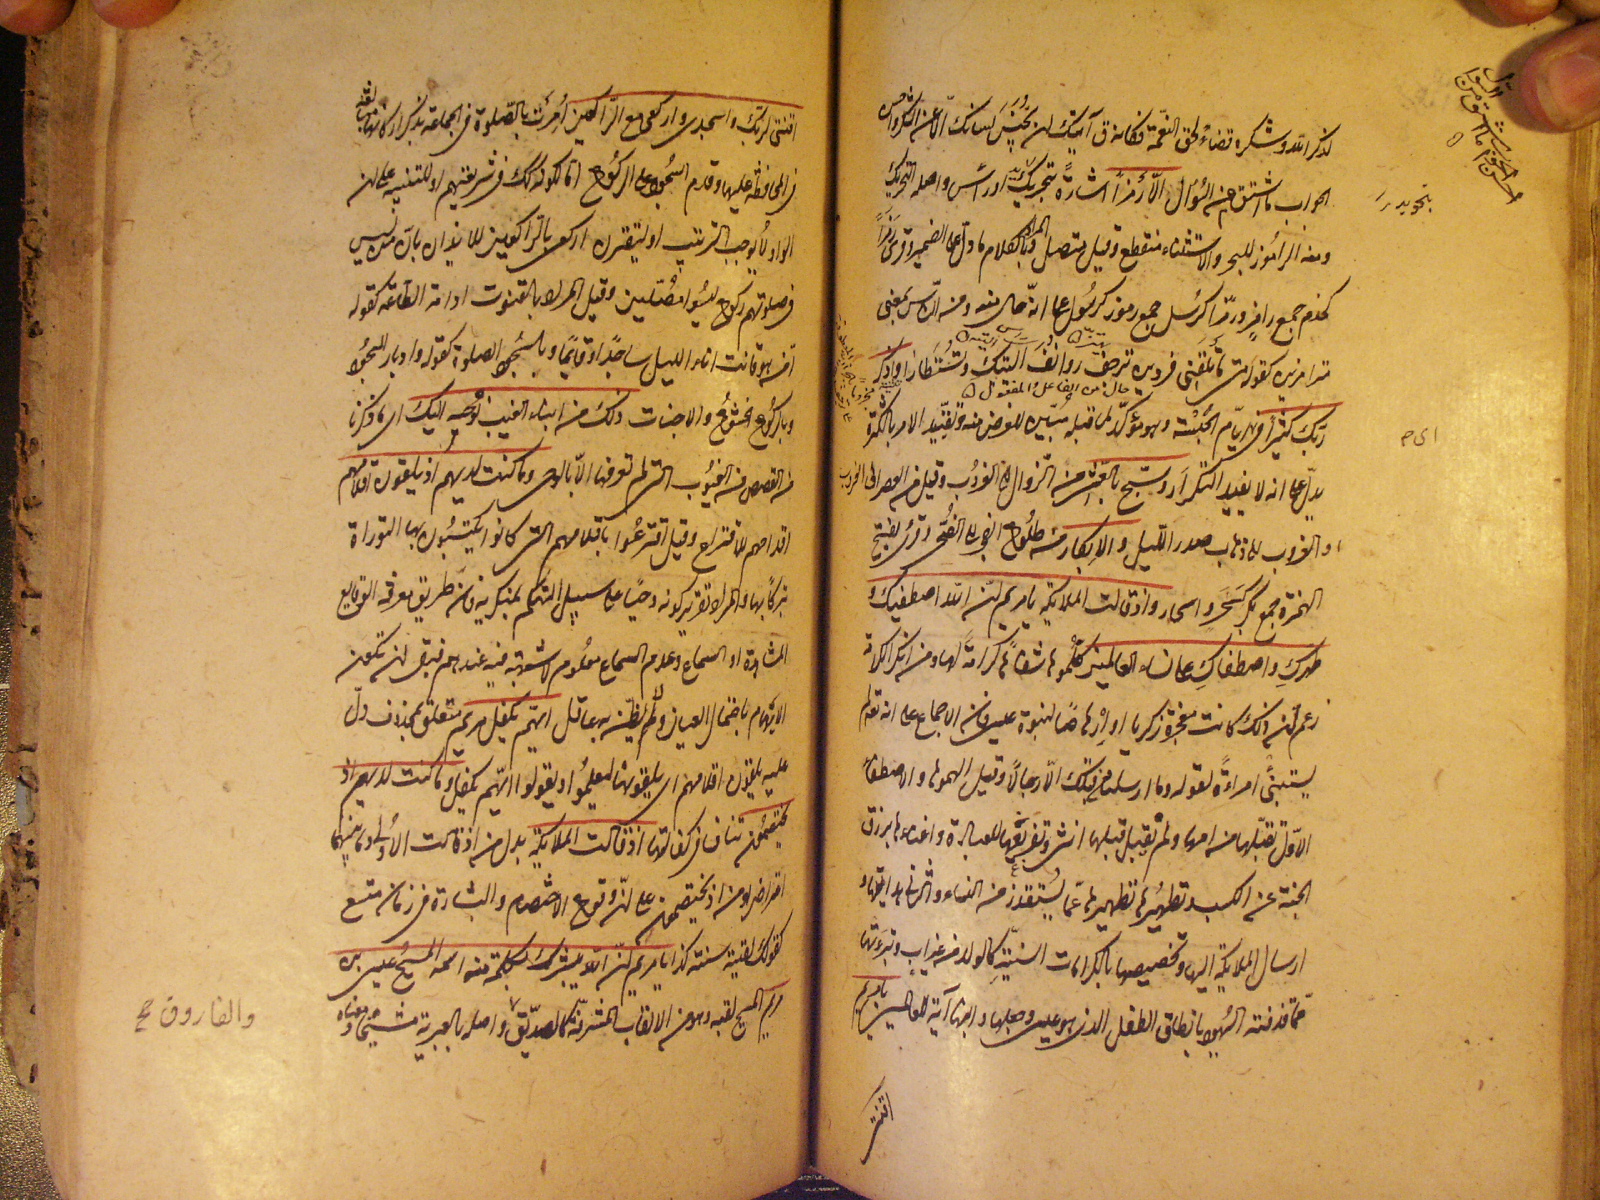 لذكر الله وشكره قضاء لحق النعمة فكانه قال آيتك ان يحبس لسانك الا عن الشكر واحسن
الجواب ما اشتق من السؤال الا رمزا اشارة بتحريك يد او راس واصله التحريك
ومنه الراموز للبحر والاستثناء منقطع وقيل متصل والمراد بالكلام ما دل على الضمير وقرئ رمزا
كخدم جمع رامز ورمزا كرسل جمع رموز كرسول على انه حال منه ومن الناس بمعنى
مترامزين كقوله متى ما تلقني فردين ترجف روانف اليتيك وتستطارا واذكر
حال من الفاعل والمفعول
ربك كثيرا في ايام الحبسة وهو مؤكد لما قبله مبين للغرض منه وتقييد الامر بالكثرة
يدل على انه لا يفيد التكرار وسبح بالعشي من الزوال الى الغروب وقيل من العصر
او الغروب الى ذهاب صدر الليل والابكار من طلوع الفجر الى الضحى وقرئ بفتح
الهمزة جمع بكر كسحر واسحار واذ قالت الملائكة يا مريم ان الله اصطفيك و
طهرك واصطفاك على نساء العالمين كلموها شفاها كرامة لها ومن انكر الكرامة
زعم ان ذلك كانت معجزة زكريا او ارهاصا لنبوة عيسى فان الاجماع على انه تعالى لم
يستنبئ امراة لقوله وما ارسلنا من قبلك الا رجالا وقيل الهموها والاصطفاء
الاول تقبلها من امها ولم تقبل قبلها انثى وتفريغها للعبادة واغناءها برزق
الجنة عن الكسب وتطهيرها تطهيرها عما يستقذر من النساء والثاني هدايتها و
ارسال الملائكة اليها وتخصيصها بالكرامات السنية كالولد من غير اب وتبرءتها
مما قذفته اليهود بانطاق الطفل الذي هو عيسى وجعلها وابنها آية للعالمين يا مريم
اقنتي
اقنتي لربك واسجدي واركعي مع الراكعين امرت بالصلوة في الجماعة بذكر اركانها مبالغة
في المحافظة عليها وقدم السجود على الركوع اما لكونه كذلك في شريعتهم او للتنبيه على ان
الواو لا يوجب الترتيب او ليقترن اركعي بالراكعين للايذان بان من ليس
في صلوتهم ركوع ليسوا مصلين وقيل المراد بالقنوت ادامة الطاعة كقوله
امن هو قانت اناء الليل ساجدا وقائما وبالسجود الصلوة كقوله وادبار السجود
وبالركوع الخشوع والاخبات ذلك من انباء الغيب نوحيه اليك اي ما ذكرنا
من القصص من الغيوب التي لم تعرفها الا بالوحي وما كنت لديهم اذ يلقون اقلامهم
اقداحهم للاقتراع وقيل اقترعوا باقلامهم التي كانوا يكتبون بها التوراة
تبركا بها والمراد تقرير كونه وحيا على سبيل التهكم بمنكريه فان طريق معرفة الوقايع
المشاهدة او السماع وعدم السماع معلوم لا شبهة فيه عندهم فبقى ان تكون
الاتهام باحتمال العيان ولا يظن به عاقل ايهم يكفل مريم متعلق بمحذوف دل
عليه يلقون اقلامهم اي يلقونها ليعلموا او يقولوا ايهم يكفل وما كنت لديهم اذ
يختصمون تنافسا في كفالتها اذ قالت الملائكة بدل من اذ قالت الاولى وما بينهما
اعتراض او من اذ يختصمون على ان وقوع الاختصام والبشارة في زمان متسع
كقولك لقيته سنة كذا يا مريم ان الله يبشرك بكلمة منه اسمه المسيح عيسى بن
مريم المسيح لقبه وهو من الالقاب المشرفة كالصديق واصله بالعبرية مشيحا ومعناه
والفاروق صح